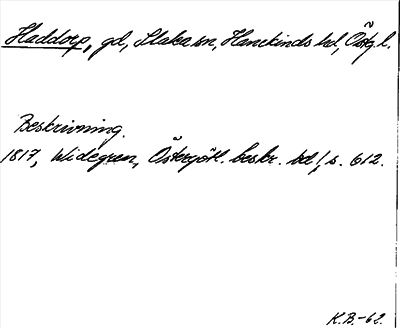 Haddorp, gd, Slaka sn, Hanekinds hd, Östg. l.
Beskrivning.
1817, Widegren, Östergötl. beskr. bd 1, s. 612.
K.B.-62.